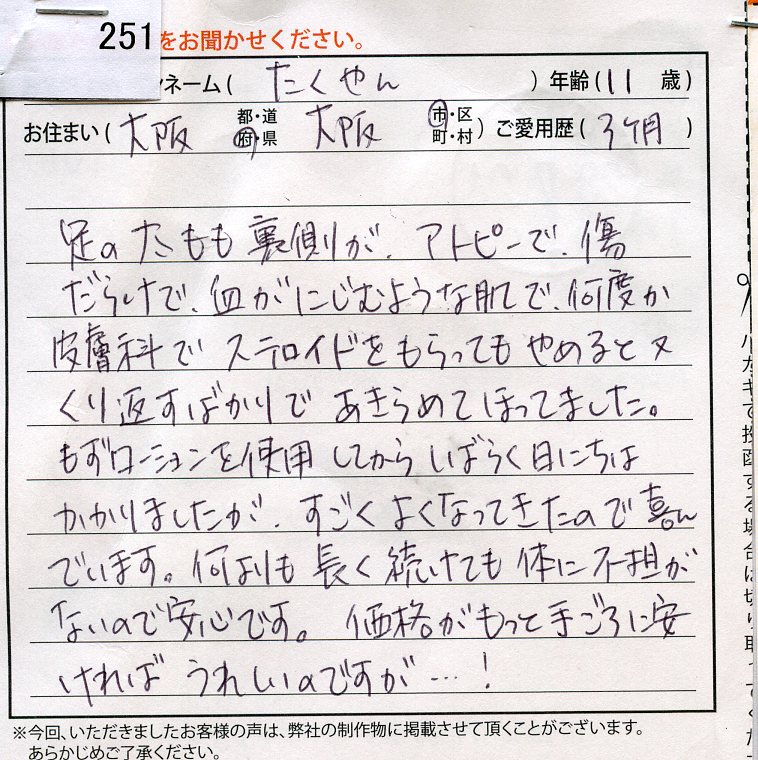 251 をお聞かせください。
ンネーム ( たくやん ) 年齢 ( 11 歳 )
お住まい ( 大阪 都・道 府・県 大阪 市・区 町・村 ) ご愛用歴 ( 3ヶ月 )
足の太もも裏側が、アトピーで、傷
だらけで、血がにじむような肌で、何度か
皮膚科でステロイドをもらってもやめると又
くり返すばかりであきらめてほってました。
もずローションを使用してからしばらく日にちは
かかりましたが、すごくよくなってきたので喜ん
でいます。何よりも長く続けても体に不担が
ないので安心です。価格がもっと手ごろに安
ければうれしいのですが…!
※今回、いただきましたお客様の声は、弊社の制作物に掲載させて頂くことがございます。
あらかじめご了承ください。
ハガキで投函する場合は切り取ってくだ